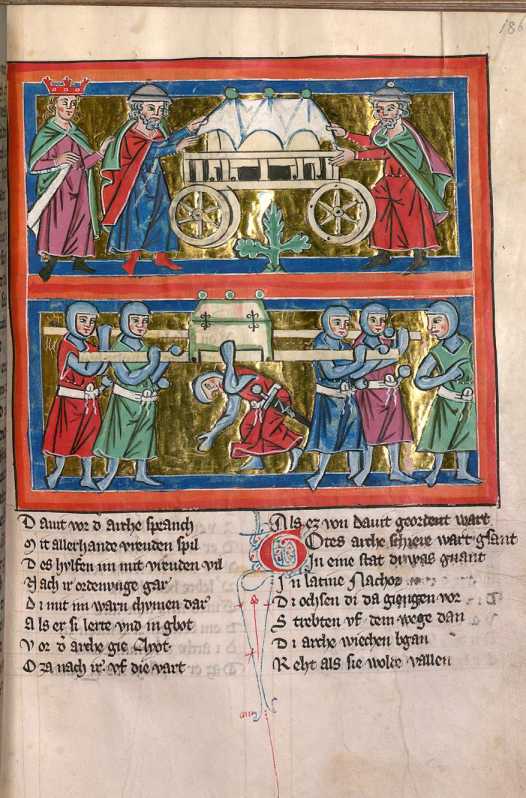 186
Dauit vor d' arche spranch
Mit allerhande vreuden spil
Des hylfen im mit vreuden vil
Nach ir ordenunge gar
Di mit im warn chumen dar
Als er si lerte vnd in gbot
Vor d' arche gie
Oza nach ir vf die vart
Als ez von dauit geordent wart
Gotes arche schiere wart gesant
In eine stat di was gnant
In latine Nachor
Di ochsen di da giengen vor
Strebten vf dem wege dan
Di arche wichen bgan
Reht als sie wolde vallen